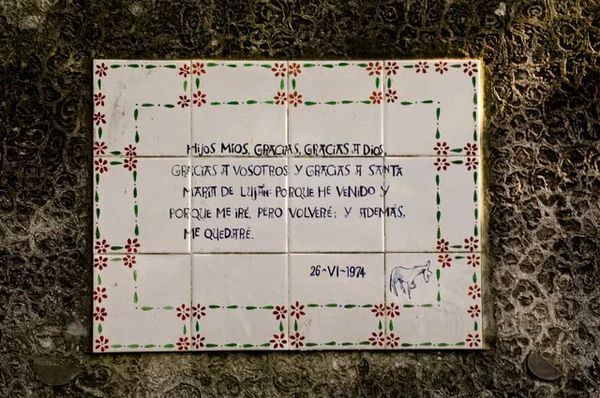 Hijos míos, gracias, gracias a Dios,
gracias a vosotros y gracias a Santa
María de Luján: porque he venido y
porque me iré, pero volveré; y además,
me quedaré.
26-VI-1974